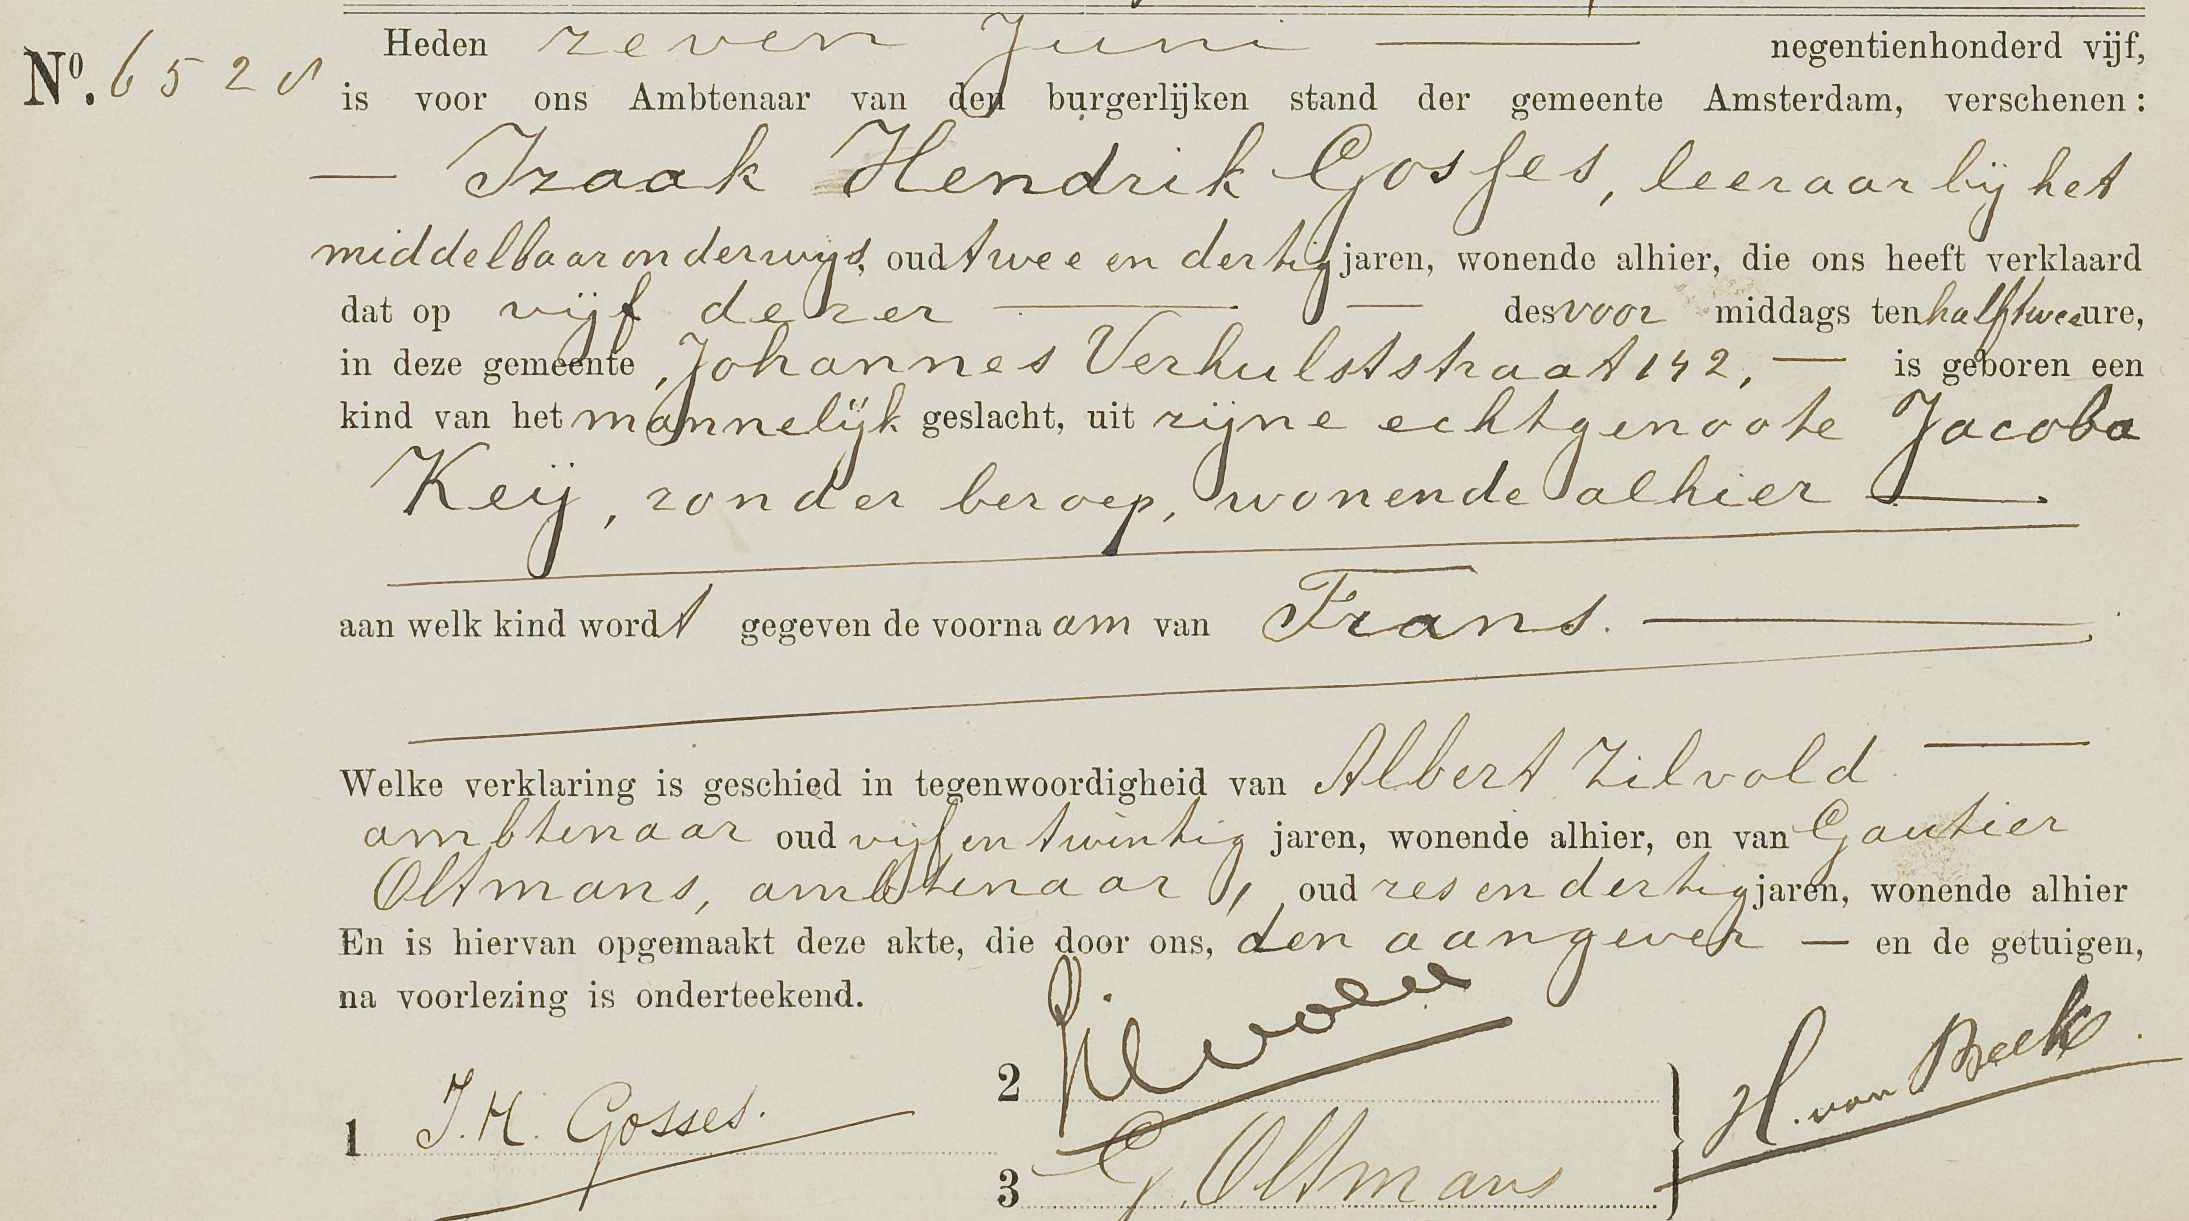 Nº. 6528
Heden zeven Juni negentienhonderd vijf,
is voor ons Ambtenaar van den burgerlijken stand der gemeente Amsterdam, verschenen:
— Izaak Hendrik Gosses, leeraar bij het
middelbaar onderwijs, oud twee en dertig jaren, wonende alhier, die ons heeft verklaard
dat op vijf dezer — — des voor middags ten half twee ure,
in deze gemeente, Johannes Verhulststraat 142, — is geboren een
kind van het mannelijk geslacht, uit zijne echtgenoote Jacoba
Keij, zonder beroep, wonende alhier —.
aan welk kind wordt gegeven de voornaam van Frans. —
Welke verklaring is geschied in tegenwoordigheid van Albert Zilvold —
ambtenaar oud vijf en twintig jaren, wonende alhier, en van Gautier
Oltmans, ambtenaar, oud zes en dertig jaren, wonende alhier
En is hiervan opgemaakt deze akte, die door ons, den aangever — en de getuigen,
na voorlezing is onderteekend.
1 I.H. Gosses.
2 Zilvold
3 G. Oltmans
H. van Beek.